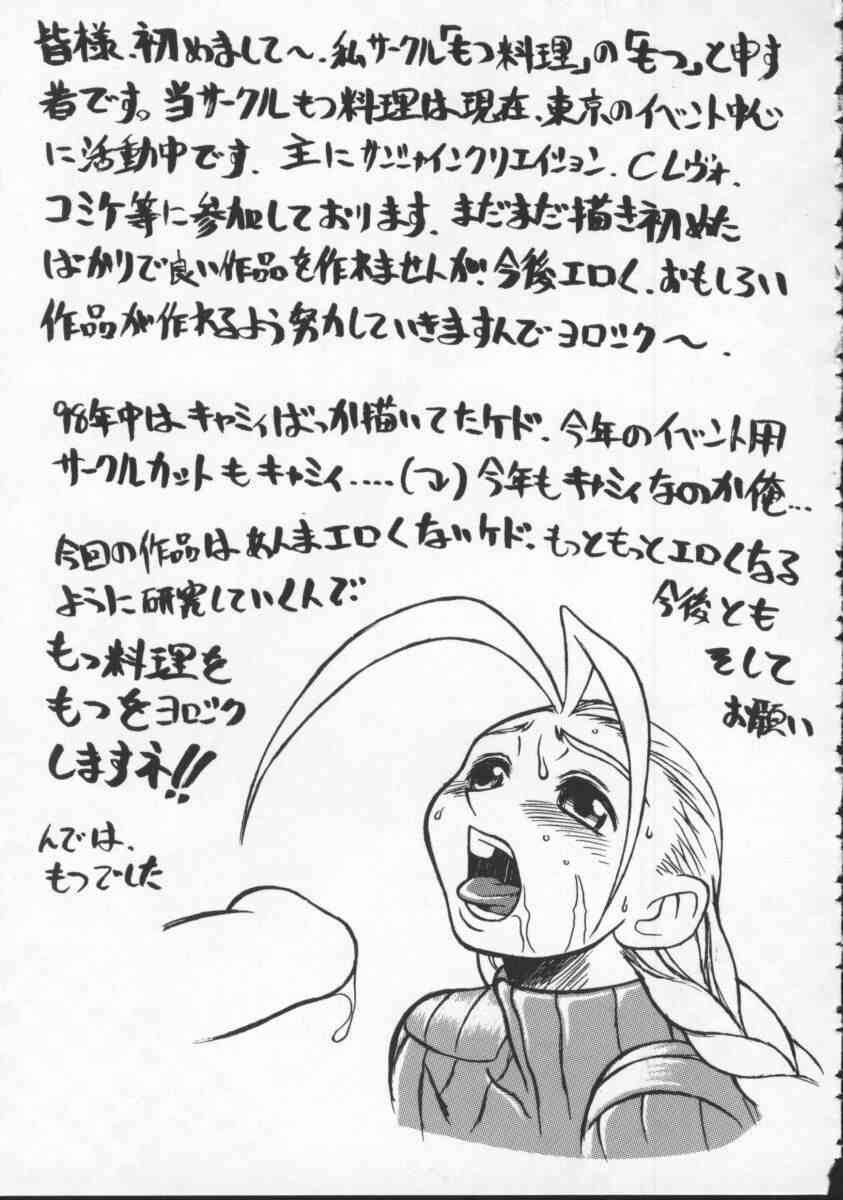 皆様、初めまして～、私サークル「もつ料理」の「もつ」と申す
者です。当サークルもつ料理は現在、東京のイベント中心
に活動中です。主にサンシャインクリエイション、CLヴォ、
コミケ等に参加しております。まだまだ描き初めた
ばかりで良い作品を作れませんが、今後エロく、おもしろい
作品が作れるよう努力していきますんでヨロシク～.
98年中はキャミィばっか描いてたケド、今年のイベント用
サークルカットもキャミィ....(つい)今年もキャミィなのか俺...
今回の作品はあんまエロくないケド、もっともっとエロくなる
ように研究していくんで
今後とも
もつ料理を
そして
もつをヨロシク
お願い
しますネ!!
んでは、
もつでした